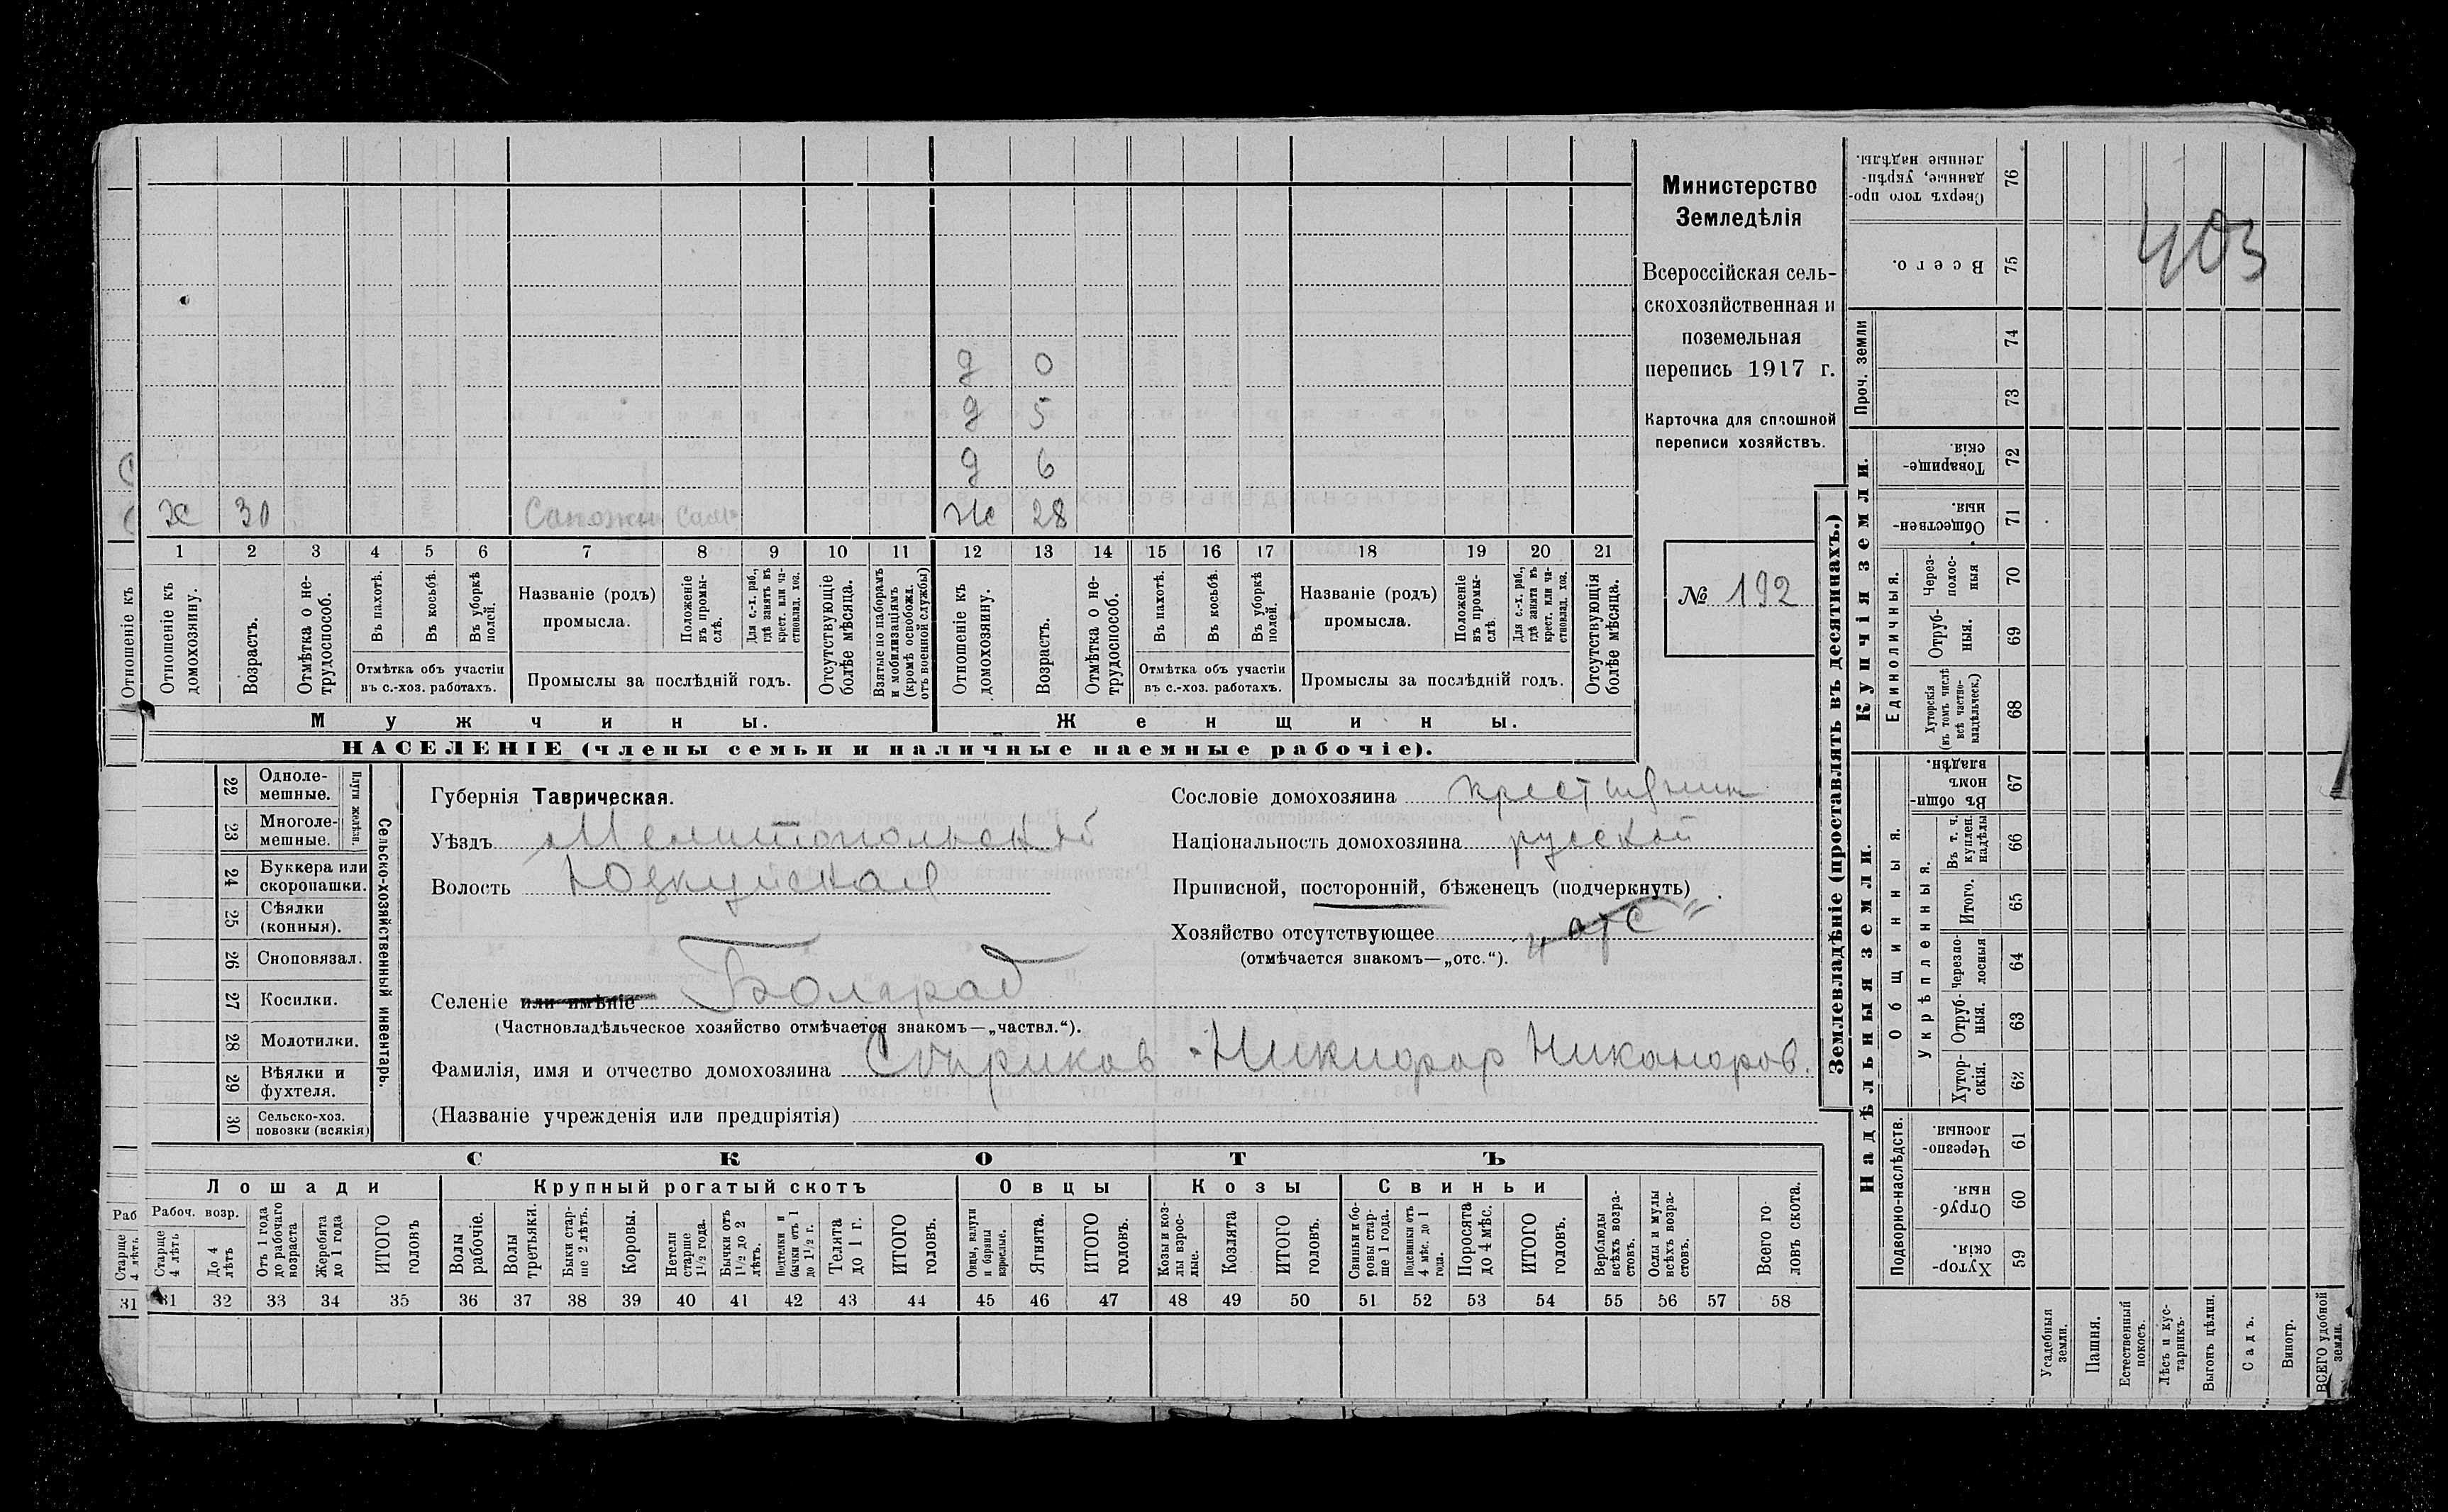 Министерство
Земледѣлія
Всероссійская сель-
скохозяйственная и
поземельная
перепись 1917 г.
Карточка для сплошной
переписи хозяйствъ.
№ 192
403
д 0
д 5
д 6
х 30 Сапожн. Сам ж 28
1 2 3 4 5 6 7 8 9 10 11 12 13 14 15 16 17 18 19 20 21
Отношеніе къ
Отношеніе къ домохозяину.
Возрастъ.
Отмѣтка о не-трудоспособ.
Въ пахотѣ.
Въ косьбѣ.
Въ уборкѣ полей.
Отмѣтка объ участіи
въ с.-хоз. работахъ.
Названіе (родъ)
промысла.
Положеніе въ промы-слѣ.
Для с.-х. раб., гдѣ занятъ въ крест. или ча-стновлад. хоз.
Промыслы за послѣдній годъ.
Отсутствующіе болѣе мѣсяца.
Взятые по наборамъ и мобилизаціямъ (кромѣ освобожд. отъ военной службы)
Отношеніе къ домохозяину.
Возрастъ.
Отмѣтка о не-трудоспособ.
Въ пахотѣ.
Въ косьбѣ.
Въ уборкѣ полей.
Отмѣтка объ участіи
въ с.-хоз. работахъ.
Названіе (родъ)
промысла.
Положеніе въ промы-слѣ.
Для с.-х. раб., гдѣ занята въ крест. или ча-стновлад. хоз.
Промыслы за послѣдній годъ.
Отсутствующія болѣе мѣсяца.
Мужчины. Женщины.
НАСЕЛЕНІЕ (члены семьи и наличные наемные рабочіе).
22 Одноле-мешные.
23 Многоле-мешные.
Плуги желѣзн.
24 Буккера или скоропашки.
25 Сѣялки (конныя).
26 Сноповязал.
27 Косилки.
28 Молотилки.
29 Вѣялки и фухтеля.
30 Сельско-хоз. повозки (всякія)
Сельско-хозяйственный инвентарь.
Губернія Таврическая.
Уѣздъ Мелитопольскій
Волость Юзкуйская
Сословіе домохозяина крестьянин
Національность домохозяина русскій
Приписной, посторонній, бѣженецъ (подчеркнуть)
Хозяйство отсутствующее „отс“
(отмѣчается знакомъ—„отс.“).
Селеніе или имѣніе Болград
(Частновладѣльческое хозяйство отмѣчается знакомъ—„частвл.“).
Фамилія, имя и отчество домохозяина Никифор Никаноров.
(Названіе учрежденія или предпріятія)
СКОТЪ
Лошади Крупный рогатый скотъ Овцы Козы Свиньи
Раб
Старше 4 лѣтъ.
31
Рабоч. возр.
Старше 4 лѣтъ
До 4 лѣтъ
Отъ 1 года до рабочаго возраста
Жеребята до 1 года
ИТОГО головъ
Волы рабочіе.
Волы третьяки.
Быки стар-ше 2 лѣтъ.
Коровы.
Нетели старше 1½ года.
Бычки отъ 1½ до 2 лѣтъ.
Подтелки и бычки отъ 1 до 1½ г.
Телята до 1 г.
ИТОГО головъ.
Овцы, валухи и бараны взрослые.
Ягнята.
ИТОГО головъ.
Козы и коз-лы взрос-лые.
Козлята
ИТОГО головъ.
Свиньи и бо-ровы стар-ше 1 года.
Подсвинки отъ 4 мѣс. до 1 года.
Поросята до 4 мѣс.
ИТОГО головъ.
Верблюды всѣхъ возра-стовъ.
Ослы и мулы всѣхъ возра-стовъ.
Всего го-ловъ скота.
31 32 33 34 35 36 37 38 39 40 41 42 43 44 45 46 47 48 49 50 51 52 53 54 55 56 57 58
Землевладѣніе (проставлять въ десятинахъ.)
Купчія земли.
Надѣльныя земли.
Сверхъ того про-данные, укрѣп-ленные надѣлы. 76
Всего. 75
Проч. земли 74 73
Товарище-скія 72
Обществен-ныя. 71
Единоличныя.
Через-полос-ныя 70
Отруб-ныя. 69
Хуторскія (въ томъ числѣ всѣ частно-владѣльческ.) 68
Общинныя.
Въ общин-номъ владѣн. 67
Укрѣпленныя.
Въ т. ч. куплен. надѣлы 66
Итого. 65
Черезпо-лосныя 64
Отруб-ныя. 63
Хутор-скія. 62
Подворно-наслѣдств.
Черезпо-лосныя. 61
Отруб-ныя. 60
Хутор-скія. 59
Усадебныя земли.
Пашня.
Естественный покосъ.
Лѣсъ и кус-тарникъ.
Выгонъ цѣлин.
Садъ.
Виногр.
ВСЕГО удобной земли.